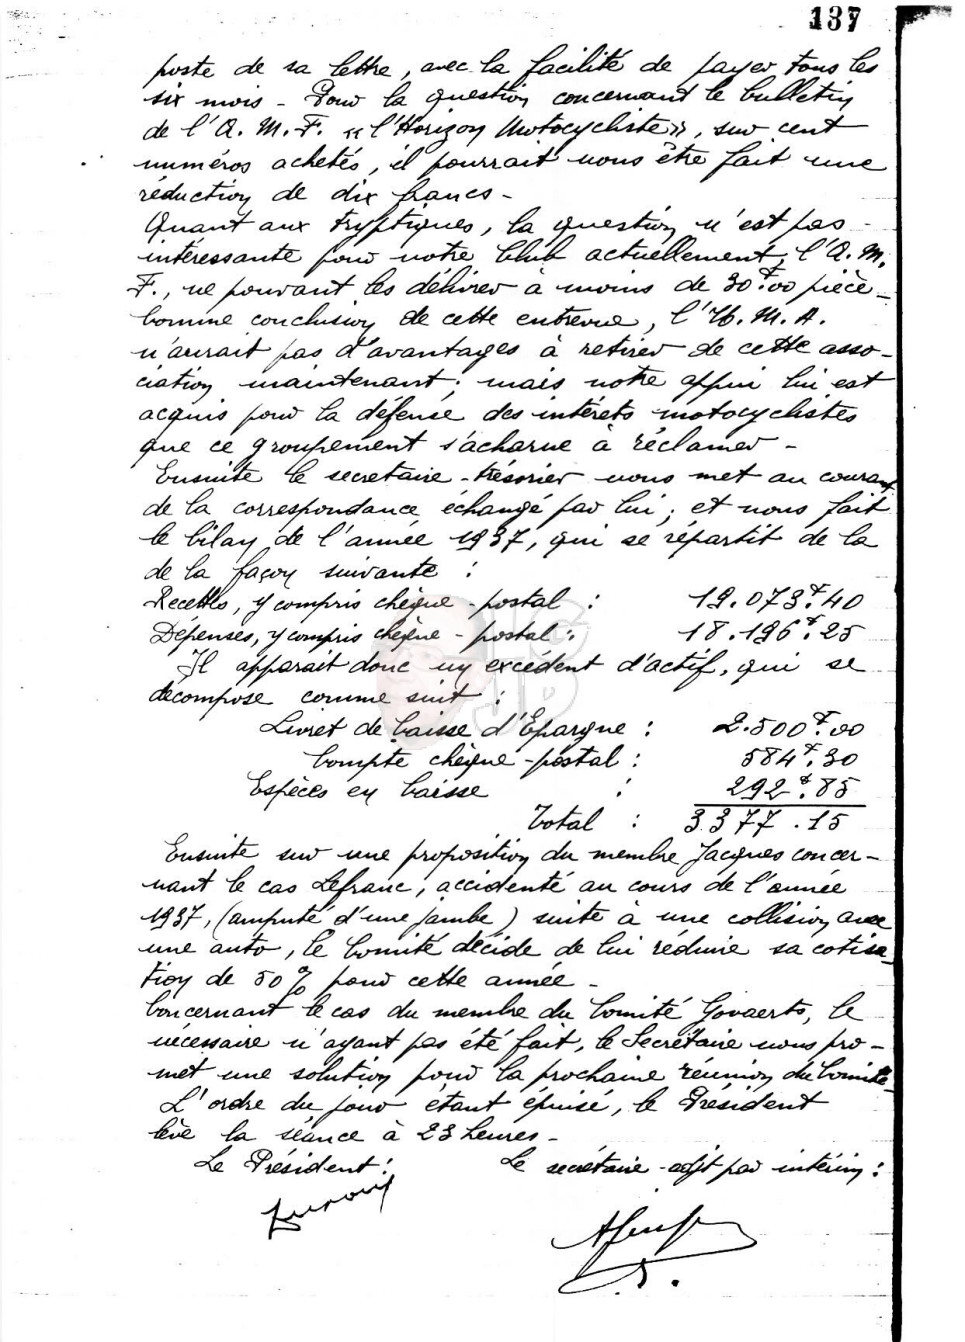 137
poste de sa lettre, avec la facilité de payer tous les
six mois - Pour la question concernant le bulletin
de l'A. M. F. "l'Horizon Motocycliste", sur cent
numéros achetés, il pourrait nous être fait une
réduction de dix francs -
Quant aux tryptiques, la question n'est pas
intéressante pour notre Club actuellement, l'A. M.
F., ne pouvant les délivrer à moins de 30F.00 pièce -
Comme conclusion de cette entrevue, l'U. M. A.
n'aurait pas d'avantages à retirer de cette asso-
ciation maintenant; mais notre appui lui est
acquis pour la défense des intérets motocyclistes
que ce groupement s'acharne à réclamer -
Ensuite le secretaire-trésorier nous met au courant
de la correspondance échangé par lui; et nous fait
le bilan de l'année 1937, qui se répartit de la
de la façon suivante :
Recettes, y compris chèque-postal : 19.073F.40
Dépenses, y compris chèque-postal : 18.196F.25
Il apparait donc un excédent d'actif, qui se
décompose comme suit :
Livret de Caisse d'Epargne : 2.500F.00
Compte chèque-postal : 584F.30
Espèces en Caisse : 292F.85
Total : 3377.15
Ensuite sur une proposition du membre Jacques concer-
nant le cas Lefranc, accidenté au cours de l'année
1937, (amputé d'une jambe) suite à une collision avec
une auto, le Comité décide de lui réduire sa cotisa-
tion de 50% pour cette année -
Concernant le cas du membre du Comité Govaerts, le
nécessaire n'ayant pas été fait, le Secrétaire nous pro-
met une solution pour la prochaine réunion du Comité
L'ordre du jour étant épuisé, le Président
lève la séance à 23 heures -
Le Président : Le secrétaire-adjt par intérim :